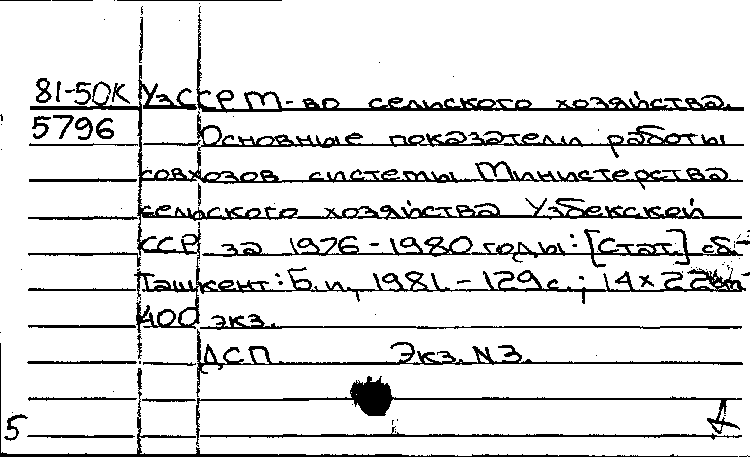 81-50К УзССР М-во сельского хозяйства.
5796 Основные показатели работы
совхозов системы Министерства
сельского хозяйства Узбекской
ССР за 1976-1980 годы: [Стат.] сб.-
Ташкент: Б.и., 1981. - 129 с.; 14×22 см
400 экз.
ДСП. Экз. N3.
5